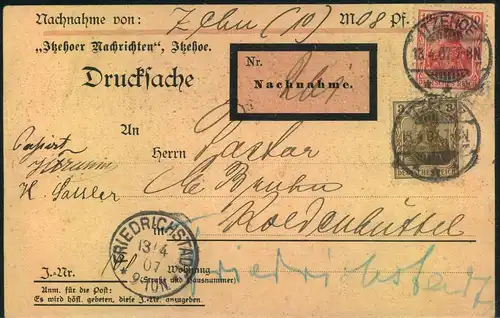 Nachnahme von: Zehn (10) M 08 Pf.
„Itzehoer Nachrichten", Itzehoe.
Drucksache
Nr.
Nachnahme.
ITZEHOE
13.4.07. 7-8N
10 10
3 3
An
Herrn Pastor
Bruhn
Koldenbüttel
in
FRIEDRICHSTADT
13/4
07
9-10N.
Wohnung
(Straße und Hausnummer)
Friedrichstadt
J.-Nr.
Anm. für die Post:
Es wird höfl. gebeten, diese J.-Nr. anzugeben.